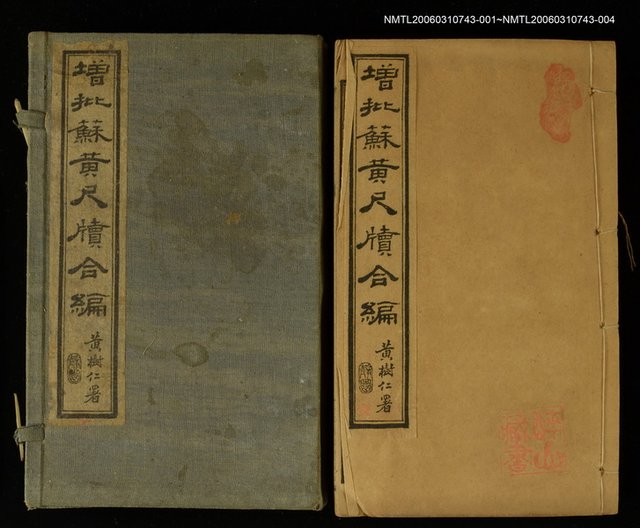 NMTL20060310743-001~NMTL20060310743-004
增批蘇黃尺牘合編
黃樹仁署
增批蘇黃尺牘合編
黃樹仁署